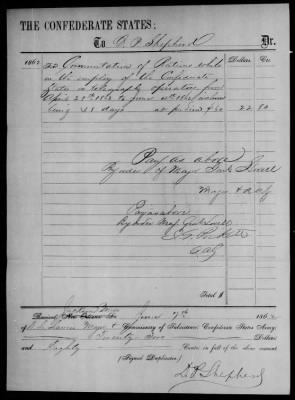 THE CONFEDERATE STATES,
To O. P. Shepherd Dr.
1862 Dollars Cts
To Commutation of Rations while
in the employ of the Confederate
States as telegraph operator from
April 20th 1862 to June 1862
being 38 days at per diem 60 22 80
Pay as above
By order of Major Genl Lovell
Major & A A G
Pay as above
By order Maj. Genl Lovell
A A G
Total $
Received, Jackson Miss June 7th 1862
of Major & Commissary of Subsistence, Confederate States Army,
Twenty Two Dollars
and Eighty Cents, in full of the above account.
(Signed Duplicates.)
O. P. Shepherd